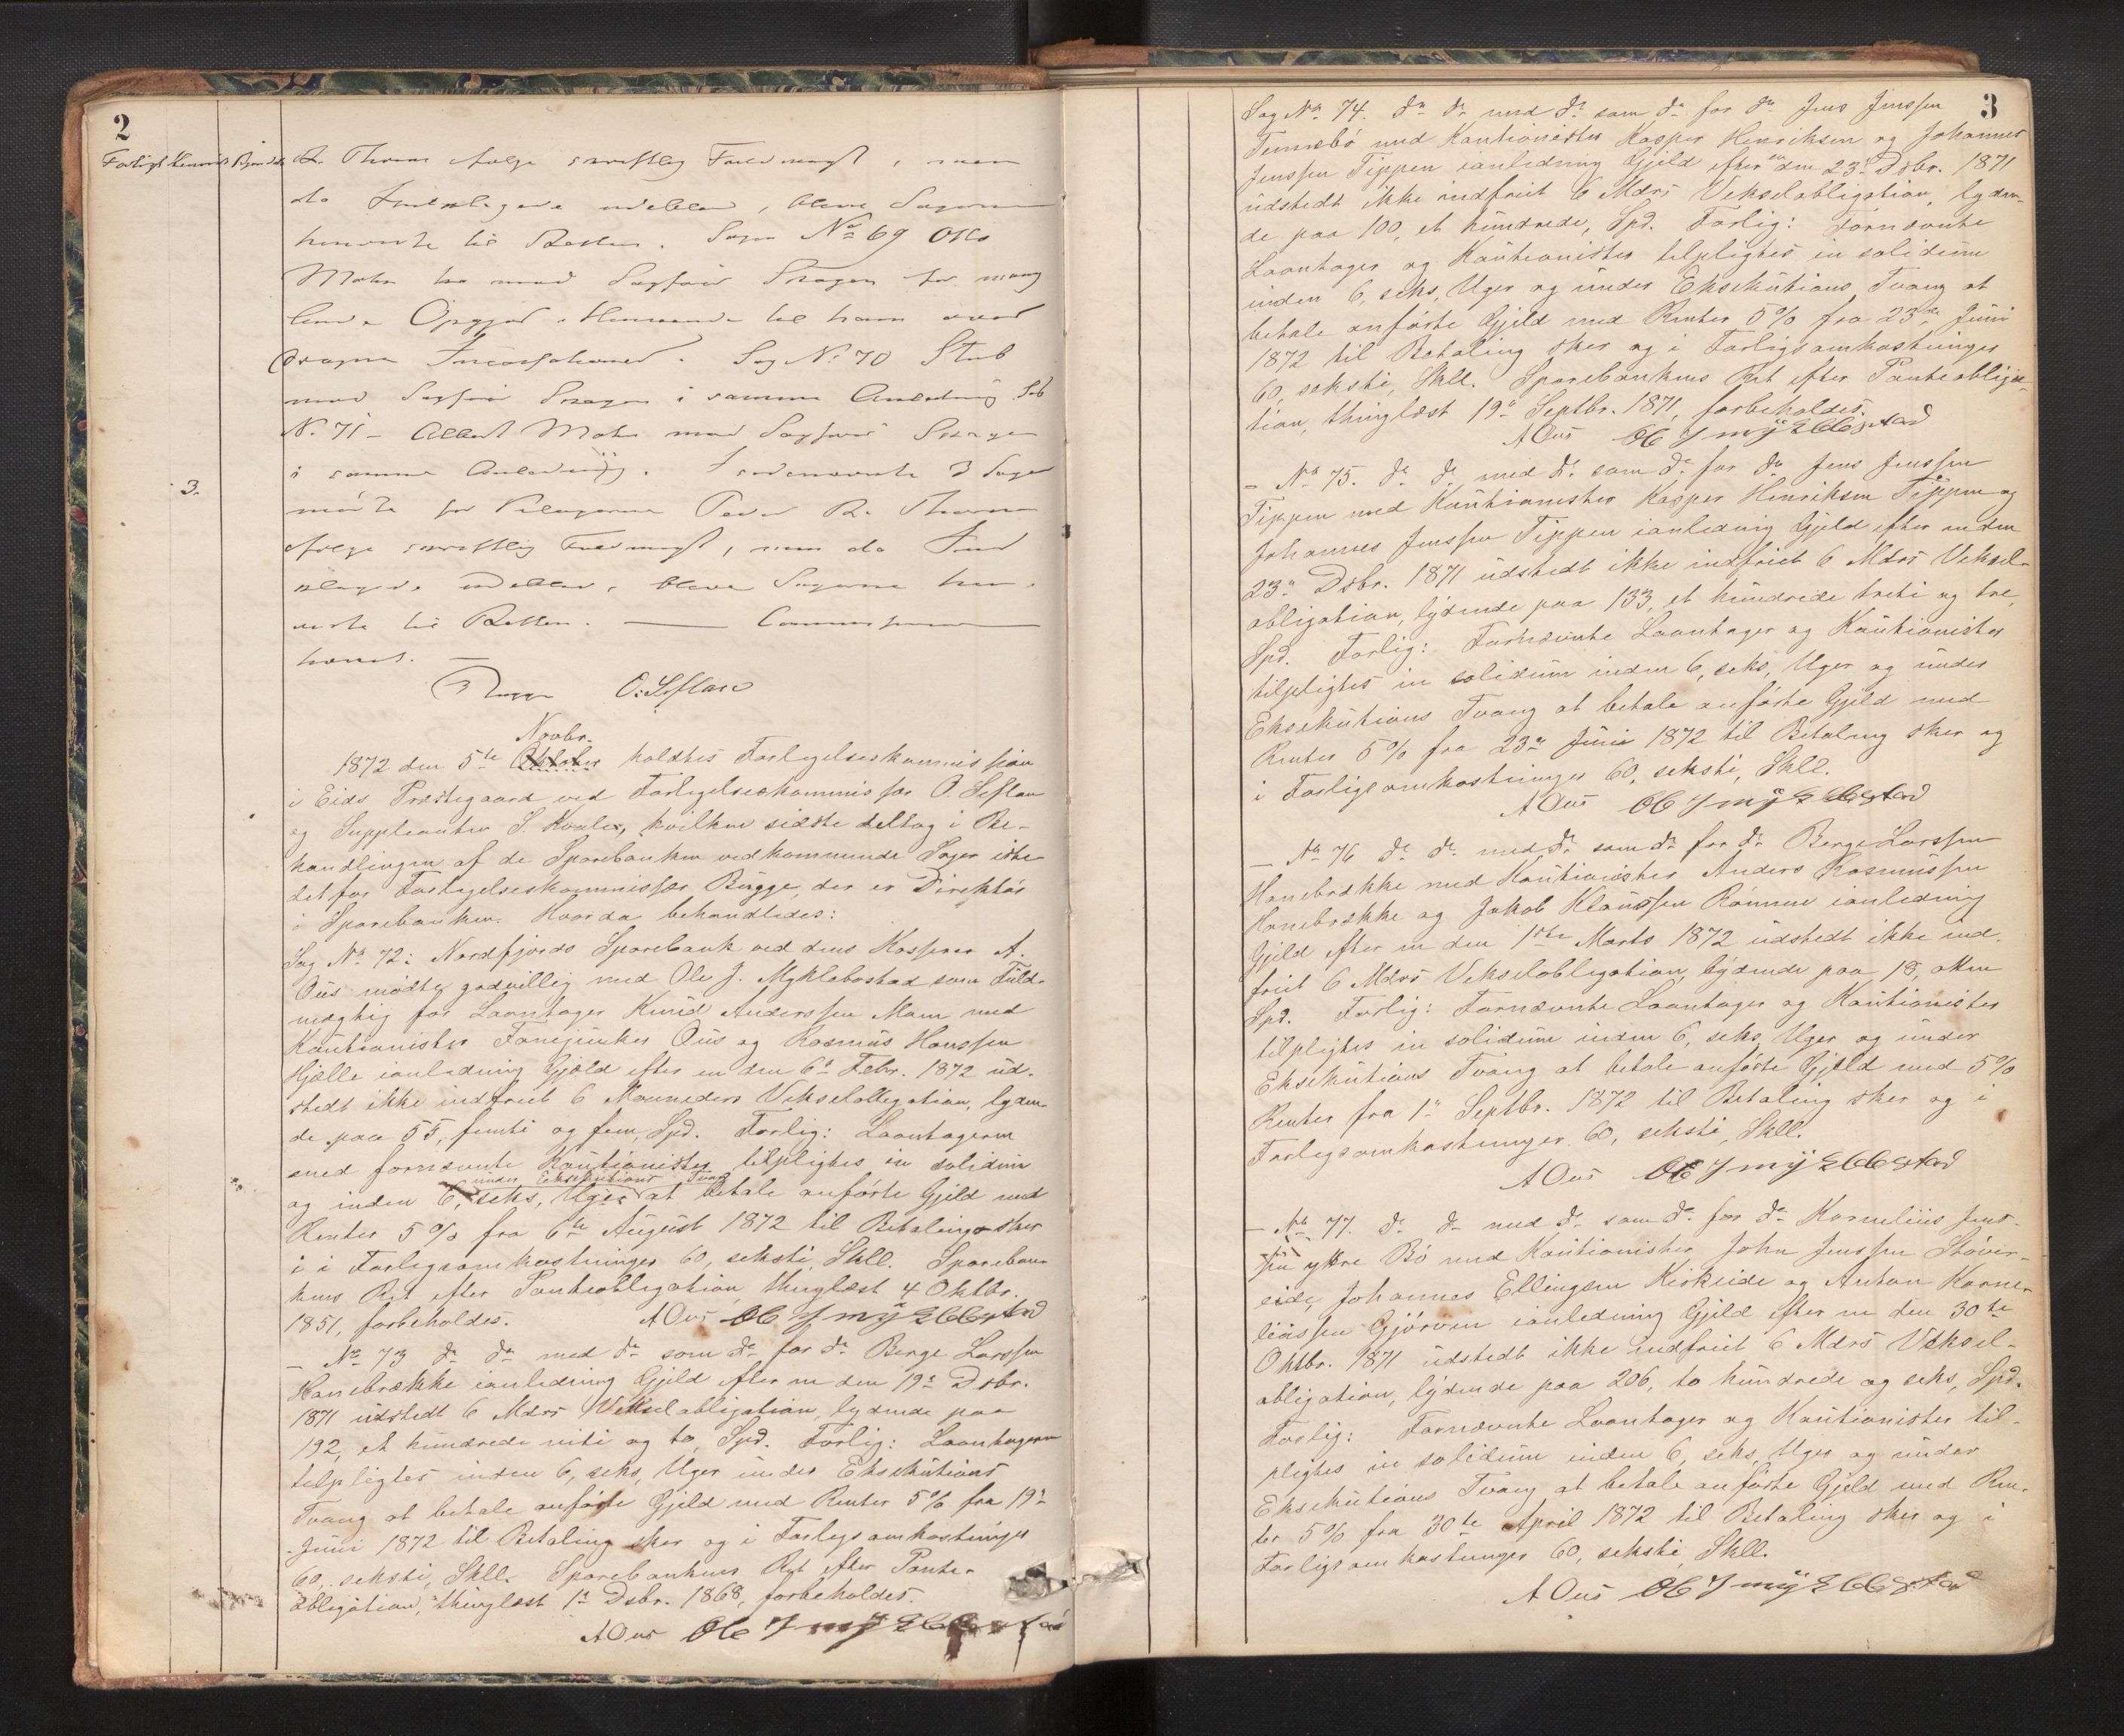 2
Forligt Henvist Bjordet
R. Thoresen ifølge skriftlig Fuldmagt, men
da Indklagede udeblev, bleve Sagerne
henviste til Retten. Sagen No 69 Otto
Mohn med Sagfører for mang
lende Opgjør
Sag No 70 Stub
mod Sagfører i samme Anledning. Sag
No 71 - Albert Mohn mod Sagfører
i samme Anledning. I 3 Sager
3.
mødte for Klagerne R. Thoresen
ifølge skriftlig Fuldmagt, men da Ind
klagede udeblev, bleve Sagerne hen-
viste til Retten. — Commissionen
hævet. —
Bugge O. Seflan
Novbr.
1872 den 5te Oktober holdtes Forligelseskommission
i Eids Præstegaard ved Forligelseskommissær O. Seflan
og Suppleanten S. Kvale, hvilken sidste deltog i Be-
handlingen af de Sparebanken vedkommende Sager iste-
detfor Forligelseskommissær Bugge, der er Direktør
i Sparebanken. Hvorda behandledes:
Sag No 72: Nordfjords Sparebank ved dens Kasserer A.
Ous mødte godvillig med Ole J. Myklebostad som Fuld-
mægtig for Laantager Knud Anderssen Mam med
Kautionister Fanejunker Ous og Rasmus Hanssen
Hjelle ianledning Gjæld efter en den 6te Febr. 1872 ud-
stedt ikke indfriet 6 Maaneders Vekselobligation, lyden-
de paa 55, femti og fem, Spd. Forlig: Laantageren
med fornævnte Kautionister tilpligtes in solidum
under Eksekutions Tvang
og inden 6, seks, Uger at betale anførte Gjeld med
Renter 5 % fra 6te August 1872 til Betaling sker
i i Forligsomkostninger 60, seksti, Skll. Spareban-
kens Ret efter Panteobligation, thinglæst 4 Oktbr.
1851, forbeholdes. A Ous Ole J myklebostad
— No 73 do do med do som do for do Berge Larssen
Hanebrekke ianledning Gjeld efter en den 19de Dsbr.
1871 udstedt 6 Mdrs Vekselobligation, lydende paa
192, et hundrede niti og to, Spd. Forlig: Laantageren
tilpligtes inden 6, seks, Uger under Eksekutions
Tvang at betale anførte Gjeld med Renter 5 % fra 19de
Juni 1872 til Betaling sker og i Forligsomkostninger
60, seksti, Skll. Sparebankens Ret efter Pante-
obligation, thinglæst 1ste Dsbr. 1868, forbeholdes.
A Ous Ole J myklebostad
3
Sag No 74. do do med do som do for do Jens Jenssen
Tennebø med Kautionister Kasper Henriksen og Johannes
Jenssen Tippen ianledning Gjeld efter en den 23de Dsbr. 1871
udstedt ikke indfriet 6 Mdrs Vekselobligation, lyden-
de paa 100, et hundrede, Spd. Forlig: Fornævnte
Laantager og Kautionister tilpligtes in solidum
inden 6, seks, Uger og under Eksekutions Tvang at
betale anførte Gjeld med Renter 5 % fra 23de Juni
1872 til Betaling sker og i Forligsomkostninger
60, seksti, Skll. Sparebankens Ret efter Panteobliga-
tion, thinglæst 19de Septbr. 1871, forbeholdes.
A Ous Ole J myklebostad
— No 75. do do med do som do for do Jens Jenssen
Tippen med Kautionister Kasper Henriksen Tippen og
Johannes Jenssen Tippen ianledning Gjeld efter en den
23de Dsbr. 1871 udstedt ikke indfriet 6 Mdrs Veksel-
obligation, lydende paa 133, et hundrede treti og tre,
Spd. Forlig: Fornævnte Laantager og Kautionister
tilpligtes in solidum inden 6, seks, Uger og under
Eksekutions Tvang at betale anførte Gjeld med
Renter 5 % fra 23de Juni 1872 til Betaling sker og
i Forligsomkostninger 60, seksti, Skll.
A Ous Ole J myklebostad
— No 76 do do med do som do for do Berge Larssen
Hanebrekke med Kautionister Anders Rasmussen
Hanebrekke og Jakob Klaussen Rømme ianledning
Gjeld efter en den 1ste Marts 1872 udstedt ikke ind-
friet 6 Mdrs Vekselobligation, lydende paa 18, atten
Spd. Forlig: Fornævnte Laantager og Kautionister
tilpligtes in solidum inden 6, seks, Uger og under
Eksekutions Tvang at betale anførte Gjeld med 5 %
Renter fra 1ste Septbr. 1872 til Betaling sker og i
Forligsomkostninger 60, seksti, Skll.
A Ous Ole J myklebostad
— No 77. do do med do som do for do Kornelius Jens-
sen ytre Bø med Kautionister John Jenssen Støver-
eide, Johannes Ellingsen Kirkeide og Anton Korne-
liussen Gjørven ianledning Gjeld efter en den 30te
Oktbr. 1871 udstedt ikke indfriet 6 Mdrs Veksel-
obligation, lydende paa 206, to hundrede og seks, Spd.
Forlig: Fornævnte Laantager og Kautionister til-
pligtes in solidum inden 6, seks, Uger og under
Eksekutions Tvang at betale anførte Gjeld med Ren-
ter 5 % fra 30te April 1872 til Betaling sker og i
Forligsomkostninger 60, seksti, Skll.
A Ous Ole J myklebostad